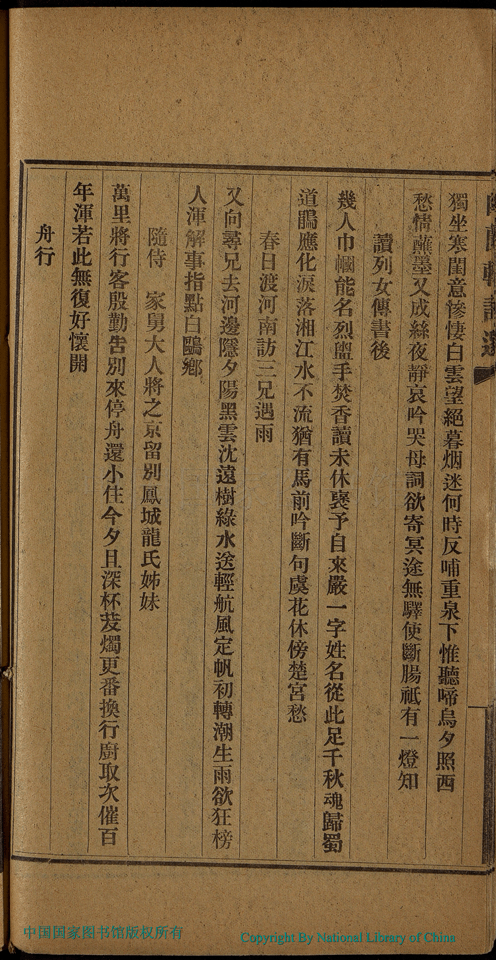 獨坐寒閨意慘悽白雲望絕暮烟迷何時反哺重泉下惟聽啼烏夕照西
愁情蘸墨又成絲夜靜哀吟哭母詞欲寄冥途無驛使斷腸祇有一燈知
讀列女傳書後
幾人巾幗能名烈盥手焚香讀未休褒予自來嚴一字姓名從此足千秋魂歸蜀
道鵑應化淚落湘江水不流猶有馬前吟斷句虞花休傍楚宮愁
春日渡河南訪三兄遇雨
又向尋兄去河邊隱夕陽黑雲沈遠樹綠水送輕航風定帆初轉潮生雨欲狂榜
人渾解事指點白鷗鄉
隨侍 家舅大人將之京留別鳳城龍氏姊妹
萬里將行客殷勤告別來停舟還小住今夕且深杯茇燭更番換行廚取次催百
年渾若此無復好懷開
舟行
中国国家图书馆版权所有
Copyright By National Library of China